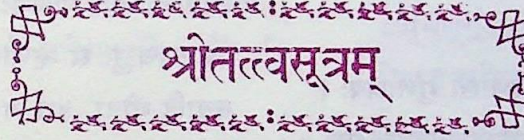 श्रीतत्त्वसूत्रम्